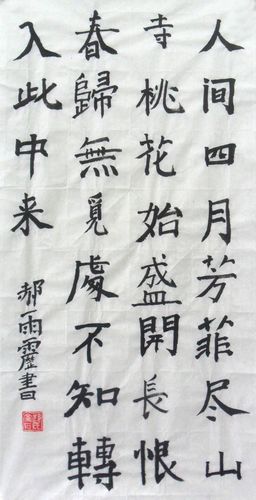 人间四月芳菲尽山
寺桃花始盛開長恨
春歸無覓處不知轉
入此中来
郝雨靂書